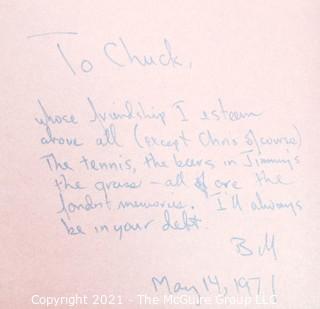 To Chuck,
whose friendship I esteem
above all (except Chris of course)
The tennis, the beers in Jimmy's
the grass - all are the
fondest memories. I'll always
be in your debt.
Bill
May 14, 1971
Copyright © 2021 - The McGuire Group LLC